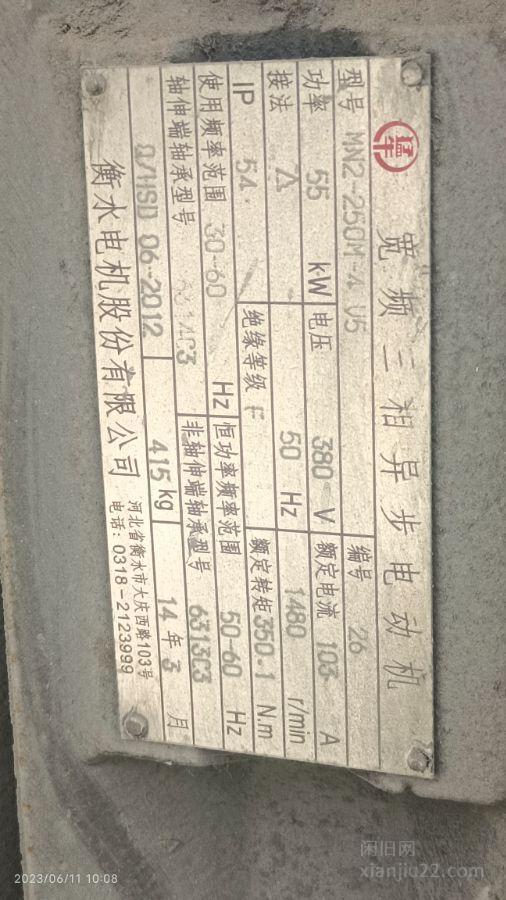 宽频三相异步电动机
型号 MN2-250M-4 V5 编号 26
功率 55 kW 电压 380 V 额定电流 103 A
接法 △ 50 Hz 1480 r/min
IP 54 绝缘等级 F 额定转矩 350.1 N.m
使用频率范围 30-60 Hz 恒功率频率范围 50-60 Hz
轴伸端轴承型号 非轴伸端轴承型号 6313C3
Q/HSD 06-2012 415kg 14年3月
衡水电机股份有限公司 河北省衡水市大庆西路103号
电话:0318-2123999
闲旧网
xianjiu22.com
2023/06/11 10:08